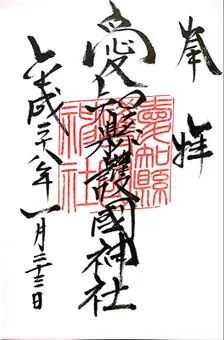 奉拝
愛知縣護國神社
平成二十八年一月二十三日
愛知縣
護國神社